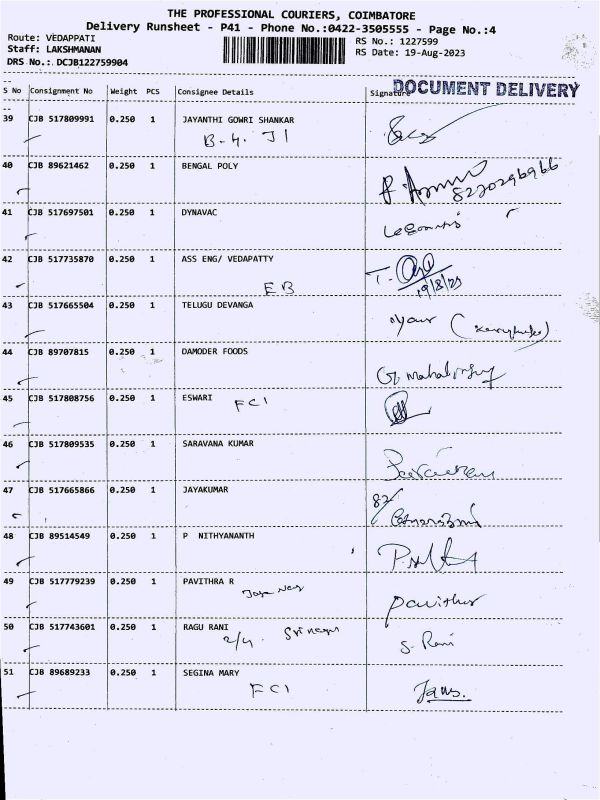 THE PROFESSIONAL COURIERS, COIMBATORE
Delivery Runsheet - P41 - Phone No.:0422-3505555 - Page No.:4
Route: VEDAPPATI
RS No.: 1227599
Staff: LAKSHMANAN
RS Date: 19-Aug-2023
DRS No.: DCJB122759904
S No Consignment No Weight PCS Consignee Details Signature
DOCUMENT DELIVERY
39 CJB 517809991 0.250 1 JAYANTHI GOWRI SHANKAR
B-4. J1
40 CJB 89621462 0.250 1 BENGAL POLY
8220296966
41 CJB 517697501 0.250 1 DYNAVAC
42 CJB 517735870 0.250 1 ASS ENG/ VEDAPATTY
EB
19/8/23
43 CJB 517665504 0.250 1 TELUGU DEVANGA
44 CJB 89707815 0.250 1 DAMODER FOODS
45 CJB 517808756 0.250 1 ESWARI
FCI
46 CJB 517809535 0.250 1 SARAVANA KUMAR
47 CJB 517665866 0.250 1 JAYAKUMAR
48 CJB 89514549 0.250 1 P NITHYANANTH
49 CJB 517779239 0.250 1 PAVITHRA R
Pavithra
50 CJB 517743601 0.250 1 RAGU RANI
2/4. Sri nagar
S. Rani
51 CJB 89689233 0.250 1 SEGINA MARY
FCI